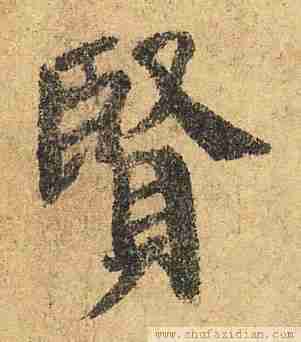 賢
www.shufazidian.com